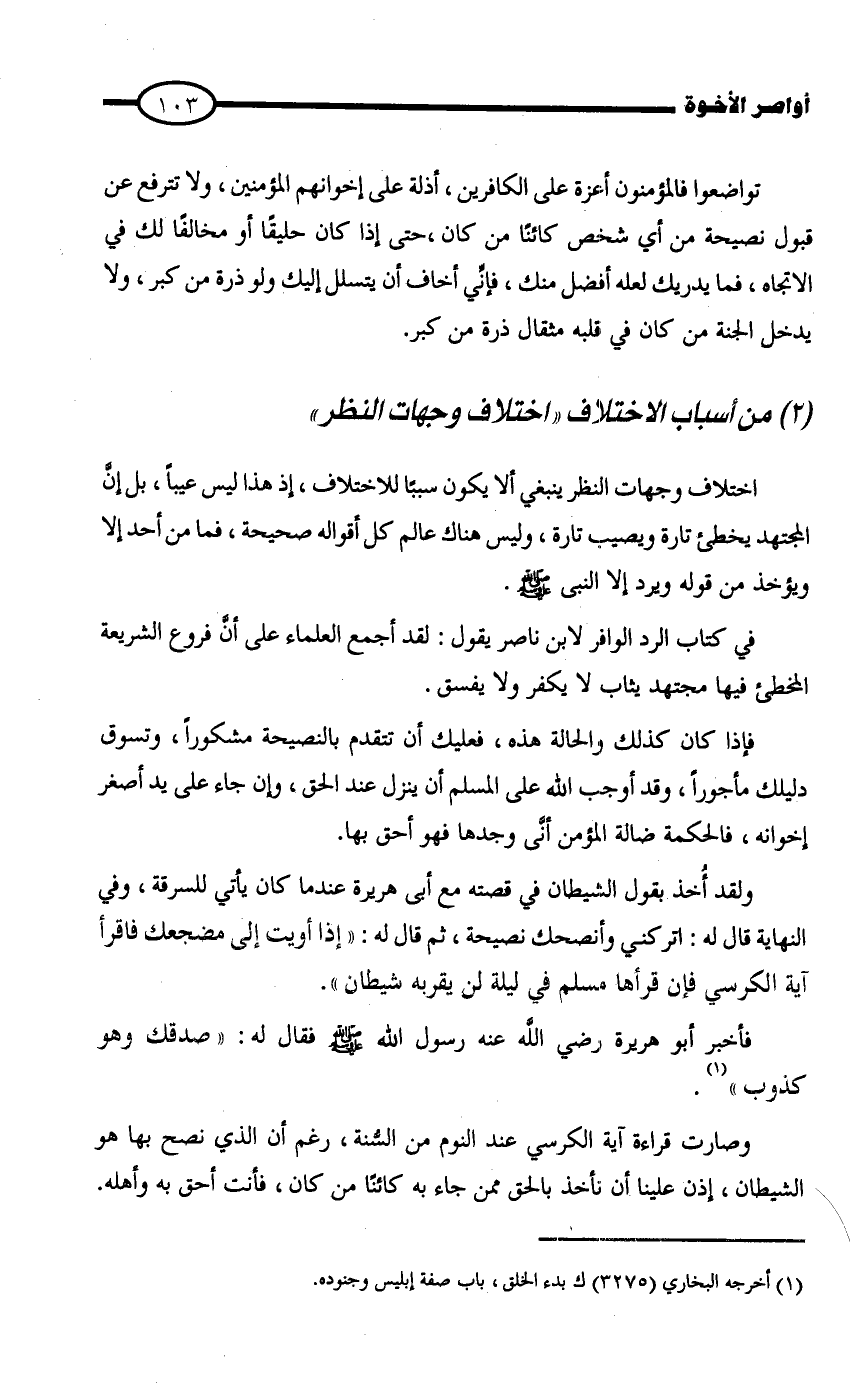 أواصر الأخوة ١٠٣
تواضعوا فالمؤمنون أعزة على الكافرين ، أذلة على إخوانهم المؤمنين ، ولا تترفع عن
قبول نصيحة من أي شخص كائنًا من كان ،حتى إذا كان حليقًا أو مخالفًا لك في
الاتجاه ، فما يدريك لعله أفضل منك ، فإنِّي أخاف أن يتسلل إليك ولو ذرة من كبر ، ولا
يدخل الجنة من كان في قلبه مثقال ذرة من كبر.
(٢) من أسباب الاختلاف «اختلاف وجهات النظر»
اختلاف وجهات النظر ينبغي ألا يكون سببًا للاختلاف ، إذ هذا ليس عيباً ، بل إنَّ
المجتهد يخطئ تارة ويصيب تارة ، وليس هناك عالم كل أقواله صحيحة ، فما من أحد إلا
ويؤخذ من قوله ويرد إلا النبى ﷺ .
في كتاب الرد الوافر لابن ناصر يقول : لقد أجمع العلماء على أنَّ فروع الشريعة
المخطئ فيها مجتهد يثاب لا يكفر ولا يفسق .
فإذا كان كذلك والحالة هذه ، فعليك أن تتقدم بالنصيحة مشكوراً ، وتسوق
دليلك مأجوراً ، وقد أوجب الله على المسلم أن ينزل عند الحق ، وإن جاء على يد أصغر
إخوانه ، فالحكمة ضالة المؤمن أنَّى وجدها فهو أحق بها.
ولقد أُخذ بقول الشيطان في قصته مع أبى هريرة عندما كان يأتي للسرقة ، وفي
النهاية قال له : اتركني وأنصحك نصيحة ، ثم قال له : «إذا أويت إلى مضجعك فاقرأ
آية الكرسي فإن قرأها مسلم في ليلة لن يقربه شيطان» .
فأخبر أبو هريرة رضي اللَّه عنه رسول الله ﷺ فقال له : « صدقك وهو
كذوب »(١) .
وصارت قراءة آية الكرسي عند النوم من السُّنة ، رغم أن الذي نصح بها هو
الشيطان ، إذن علينا أن نأخذ بالحق ممن جاء به كائنًا من كان ، فأنت أحق به وأهله.
(١) أخرجه البخاري (٣٢٧٥) ك بدء الخلق ، باب صفة إبليس وجنوده.